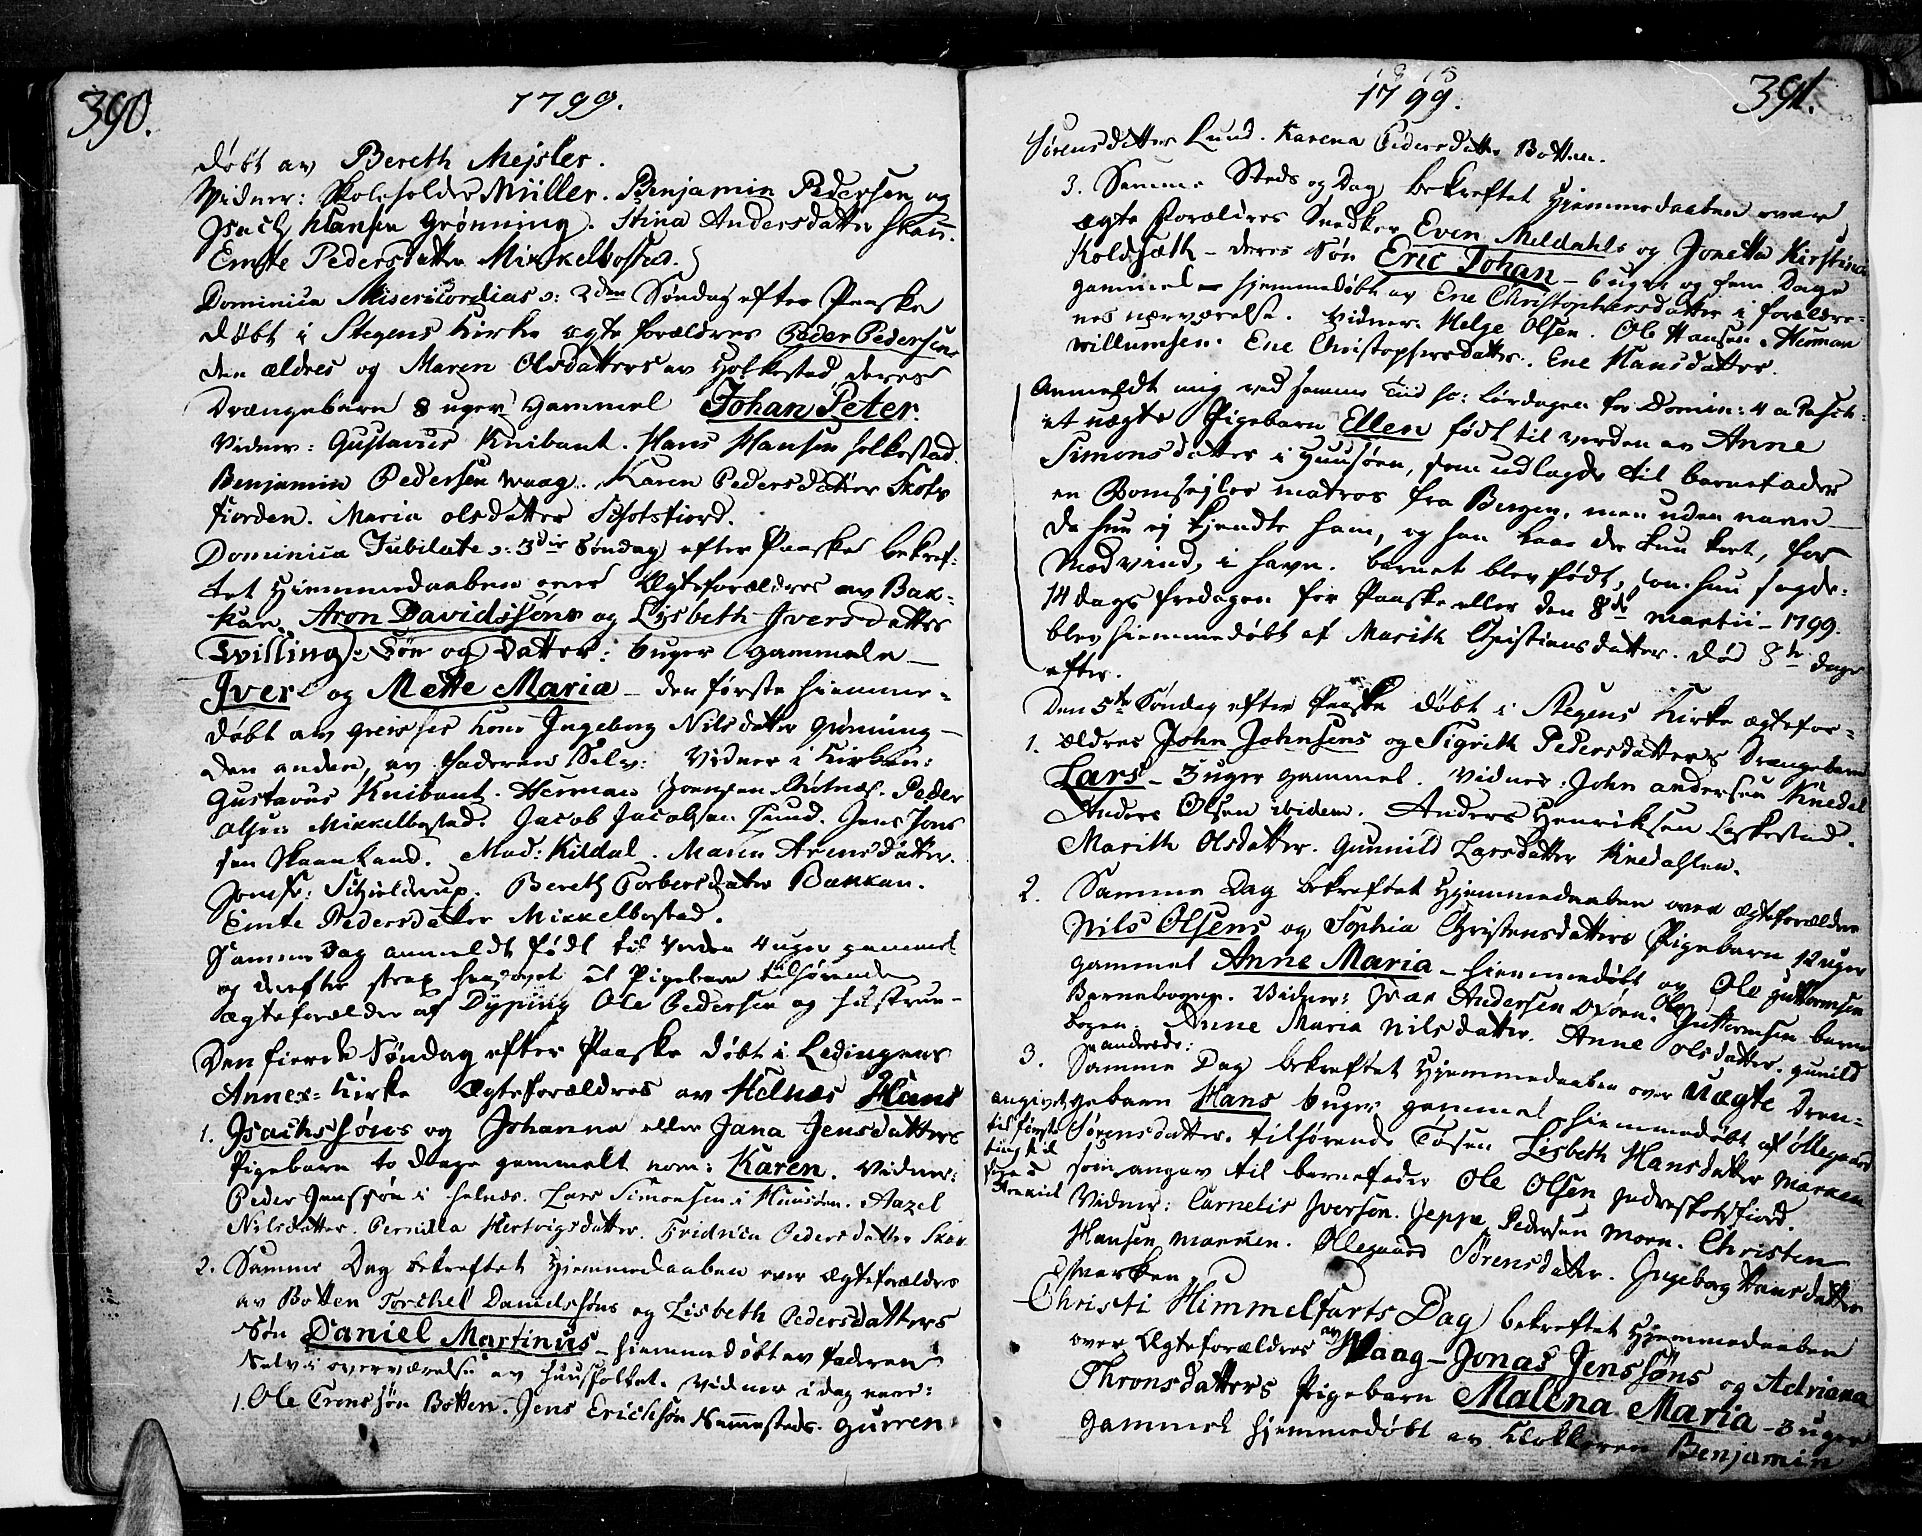 390.
1799.
døbt av Bereth Mejsler.
Widner: Skoleholder Müller. Benjamin Pedersen og
Isach Hansen Grønning. Stina Andersdatter Skau.
Emte Pedersdatter Mikkelbosted.
Dominica Misericordias ɔ: 2den Søndag efter Paaske
døbt i Stegens Kirke ægte forældres Peder Pedersens
den ældres og Maren Olsdatters av Holkestad deres
Drængebarn 8 uger gammel Johan Peter.
Vidner: Gustavus Knibant. Hans Hansen Holkestad.
Benjamin Pedersen Waag. Karen Pedersdatter Skots
fiorden. Maria olsdatter Schotsfiord.
Dominica Jubilate ɔ: 3die Søndag efter Paaske bekref-
tet Hiemmedaaben over Ægteforældres av Bak-
kan Aron Davidssøns og Lisbeth Iversdatters
Tvilling: Søn og Datter: 6 uger gammele
Iver og Mette Maria - den første hiemme-
døbt av hans kone Ingeborg Nilsdatter Grønning -
den anden av Faderen Selv: Vidner i Kirken:
Gustavus Knibant. Herman Jensen Botnæs. Peder
olsen Mikkelbostad. Jacob Jacobsen Lund. Jens Jens
sen Skaanland. Mad: Kildal. Maren Arensdatter.
Jomfr: Schielderup. Bereth Torbersdatter Bakkan.
Emte Pedersdatter Mikkelbostad.
Samme Dag anmeldt født til Verden 4 uger gammel
og derefter strax hensovet et Pigebarn tilhørende
ægteforælder af Dyping Ole Pedersen og hustrue -
Den fierde Søndag efter Paaske døbt i Ledingens
Annex-Kirke Ægteforældres av Helnes Hans
1. Isachssøns og Johanna eller Jana Jensdatters
Pigebarn to dage gammelt nom: Karen. Vidner:
Peder Jenssøn i Helnæs. Lars Simonsen i Huusøen. Aazel
Nilsdatter. Pernilla Hertvigsdatter. Fridrica Pedersdatter Skov
2. Samme Dag bekreftet Hiemmedaaben over Ægteforældres
av Botten Torchel Danielssøns og Lisbeth Pedersdatters
Søn Daniel Martinus - hiemmedøbt av Faderen
Selv i overværelse av huusfolket. Vidner i dag vare:
1. Ole Tronssøn Botten. Jens Ericksøn Sammesteds. Gurren
391.
1799.
Sørensdatter Lund. Karena Pedersdatter Botten.
3. Samme Steds og Dag bekreftet Hjemmedaaben over
ægte Forældres Snedker Even Meldahls og Jonetta Kirstina
Koldsæth - deres Søn Eric Johan - 6 uger og fem Dage
gammel - hjemmedøbt av Ene Christophersdatter i forældre-
nes nærværelse. Vidner: Helge Olsen. Ole Hansen. Herman
Willumsen. Ene Christophersdatter. Ene Hansdatter.
Anmeldt mig ved samme Tiid sc: Lørdagen for Domin: 4 a Pasch:
et uægte Pigebarn Ellen født til verden av Anne
Simonsdatter i Huusøen, som udlagde til barnefader
en Bomsejler matros fra Bergen, men uden navn -
da hun ej kjendte ham, og han laae der kun kort, for
Modvind, i havn. barnet blev født, som hun sagde:
14 dags fredagen for Paaske eller den 8de martii - 1799.
blev hiemmedøbt af Marith Christiansdatter. død 8te dage
efter.
Den 5te Søndag efter Paaske døbt i Stegens Kirke ægtefor-
1. ældres John Johnsens og Sigrith Pedersdatters Drængebarn
Lars - 3 uger gammel. Vidner: John andersen Kinedal
Anders Olsen ibidem. Anders Henriksen Leskestad.
Marith Olsdatter. Gunnild Larsdatter Kinedahlen.
2. Samme Dag bekreftet Hjemmedaaben over Ægteforældre
Nils Olsens og Sophia Christensdatters Pigebarn 12 uger
gammel Anne Maria - hiemmedøbt og Ole Guttormsen
Barnebogen. Vidner: Ivar Andersen oxøen. Ole Guttormsen barne
bogen. Anne Maria Nilsdatter. Anne olsdatter. gunild
andersdr:
3. Samme Dag bekreftet Hjemmedaaben over uægte Dren-
gebarn Hans 6 uger gammel hiemmedøbt af Ollegaard
Sørensdatter. tilhørende Tøsen Lisbeth Hansdatter Marken
som angav til barnefader Ole Olsen Indreskotsfiord.
Vidner: Carnelis Iverson. Jeppe Pedersen Moen. Christen
Hansen Marken. Ollegaard Sørensdatter. Ingeborg Hansdatter
Marken.
angivet
til første
ting til
Christi Himmelfarts Dag bekreftet Hjemmedaaben
over Ægteforældres av Waag - Jonas Jenssøns og Adriana
Thronsdatters Pigebarn Malena Maria - 3 uger
gammel hjemmedøbt av Klokkeren Benjamin